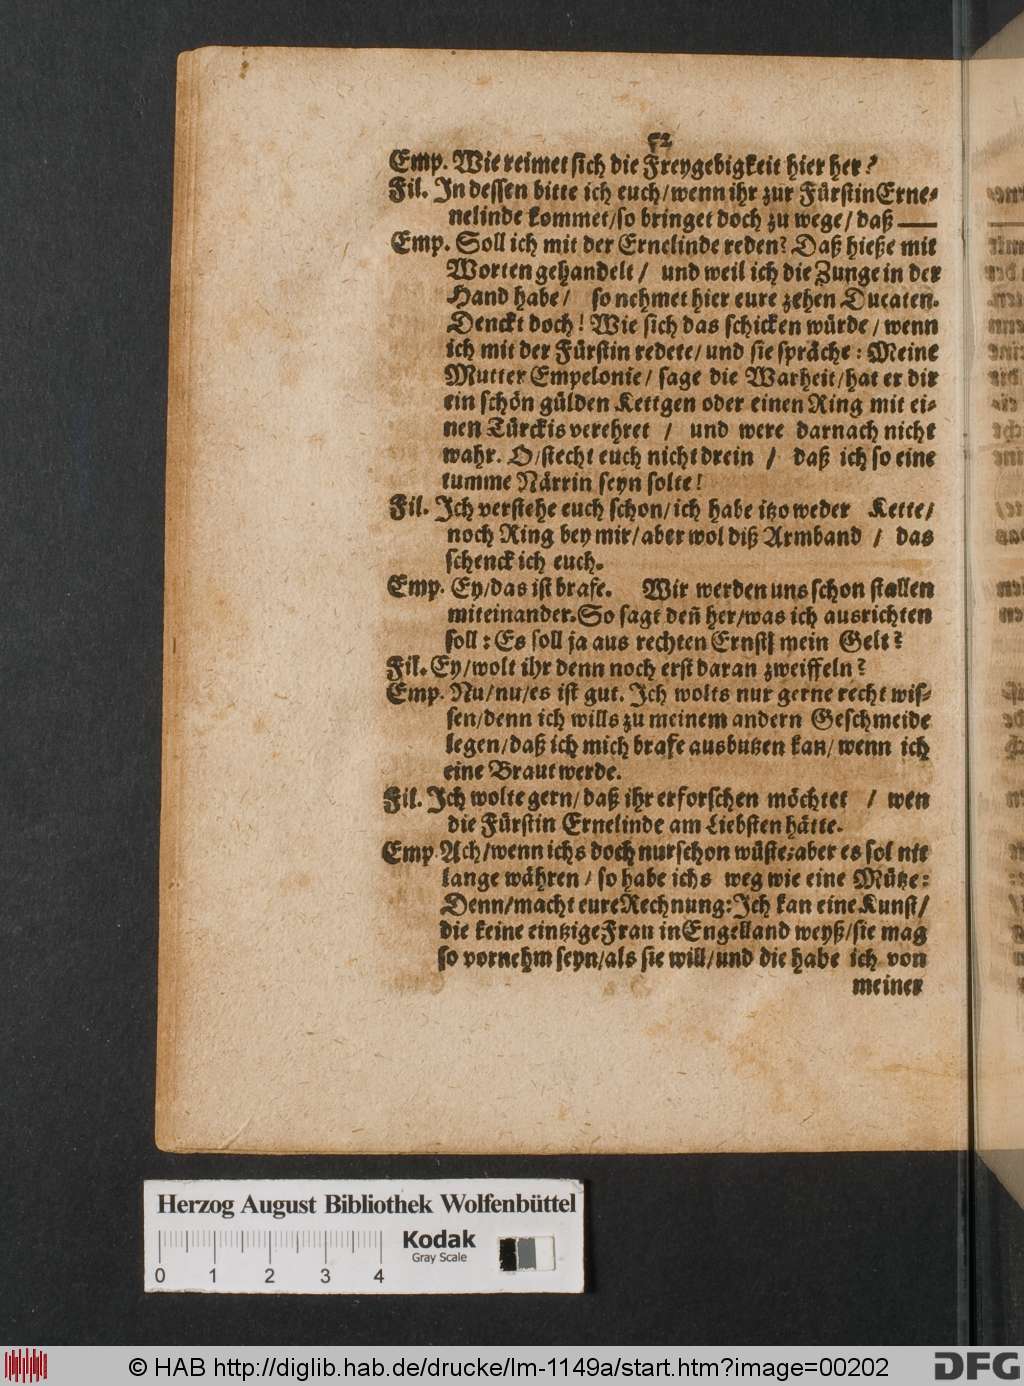 52
Emp. Wie reimet sich die Freygebigkeit hier her?
Fil. In dessen bitte ich euch/wenn ihr zur Fürstin Erne-
nelinde kommet/so bringet doch zu wege/ daß ——
Emp. Soll ich mit der Ernelinde reden? Daß hieße mit
Worten gehandelt/ und weil ich die Zunge in der
Hand habe/ so nehmet hier eure zehen Ducaten.
Denckt doch! Wie sich das schicken würde/ wenn
ich mit der Fürstin redete/ und sie spräche: Meine
Mutter Empelonie/ sage die Warheit/hat er dir
ein schön gülden Kettgen oder einen Ring mit ei-
nen Türckis verehret / und were darnach nicht
wahr. O/stecht euch nicht drein / daß ich so eine
tumme Närrin seyn solte!
Fil. Ich verstehe euch schon/ich habe itzo weder Kette/
noch Ring bey mir/aber wol diß Armband / das
schenck ich euch.
Emp. Ey/das ist brafe. Wir werden uns schon stallen
miteinander. So sagt deñ her/was ich ausrichten
soll: Es soll ja aus rechten Ernst mein Gelt?
Fil. Ey/wolt ihr denn noch erst daran zweiffeln?
Emp. Nu/nu/es ist gut. Ich wolts nur gerne recht wis-
sen/denn ich wills zu meinem andern Geschmeide
legen/daß ich mich brafe ausbutzen kan/ wenn ich
eine Braut werde.
Fil. Ich wolte gern/daß ihr erforschen möchtet / wen
die Fürstin Ernelinde am Liebsten hätte.
Emp. Ach/wenn ichs doch nur schon wüste; aber es sol nit
lange währen/ so habe ichs weg wie eine Mütze:
Denn/macht eure Rechnung: Ich kan eine Kunst/
die keine eintzige Frau in Engelland weyß/sie mag
so vornehm seyn/als sie will/und die habe ich von
meiner
Herzog August Bibliothek Wolfenbüttel
Kodak
Gray Scale
0 1 2 3 4
© HAB http://diglib.hab.de/drucke/lm-1149a/start.htm?image=00202
DFG